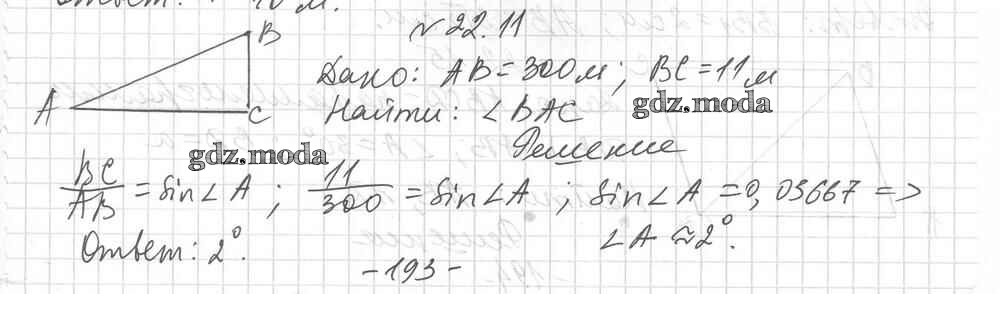 Ответ: 10 м.
N 22.11
B
Дано: AB = 300м; BC = 11м
A
Найти: ∠BAC
gdz.moda
C
Решение
gdz.moda
BC/AB = sin∠A; 11/300 = sin∠A; sin∠A = 0,03667 =>
∠A ≈ 2°.
Ответ: 2°.
-193-